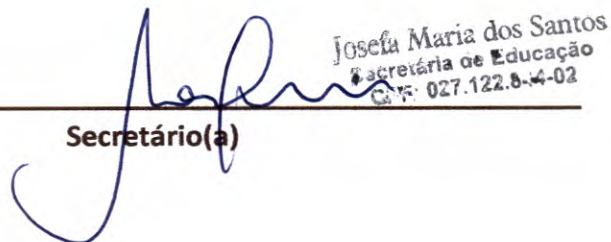 Josefa Maria dos Santos
Secretária de Educação
027.122.
-02
Secretário(a)